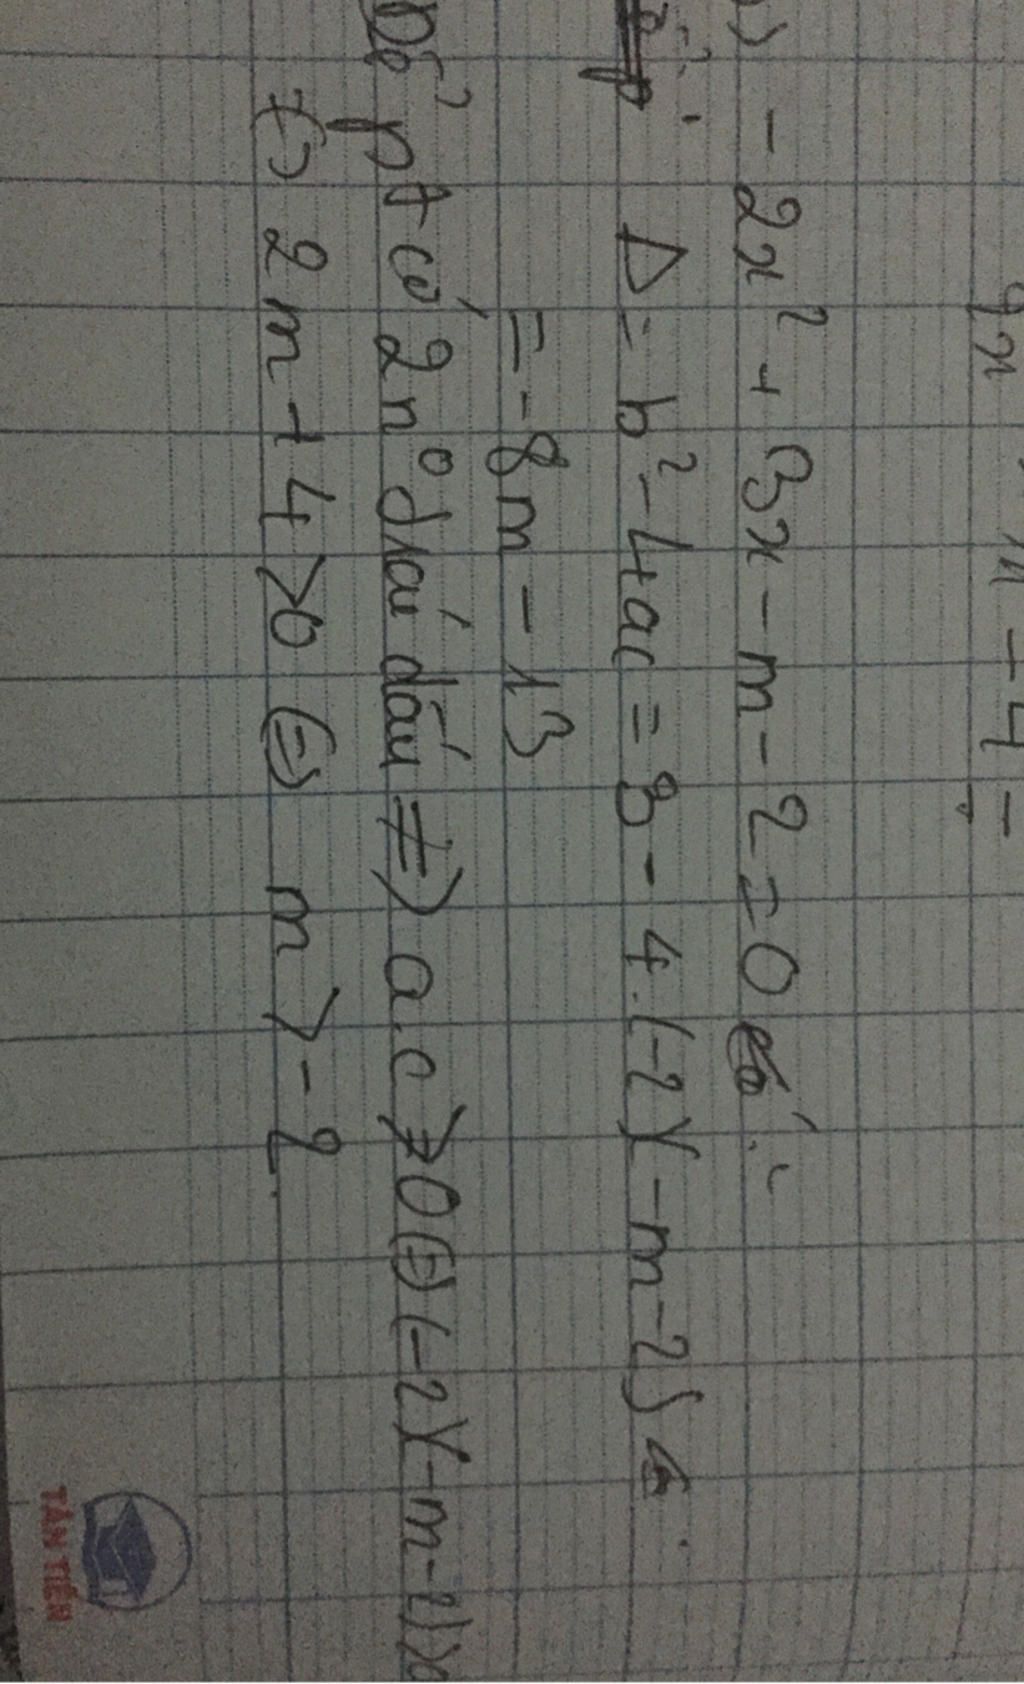 9x x - 4 =
) - 2x² + 3x - m - 2 = 0
Δ = b² - 4ac = 3 - 4.(-2)(-m-2)
= -8m - 13
Để pt có 2 n° trái dấu ⇔ a.c > 0 ⇔ (-2)(-m-2)>0
⇔ 2m + 4 > 0 ⇔ m > -2.
TÂN TIẾN